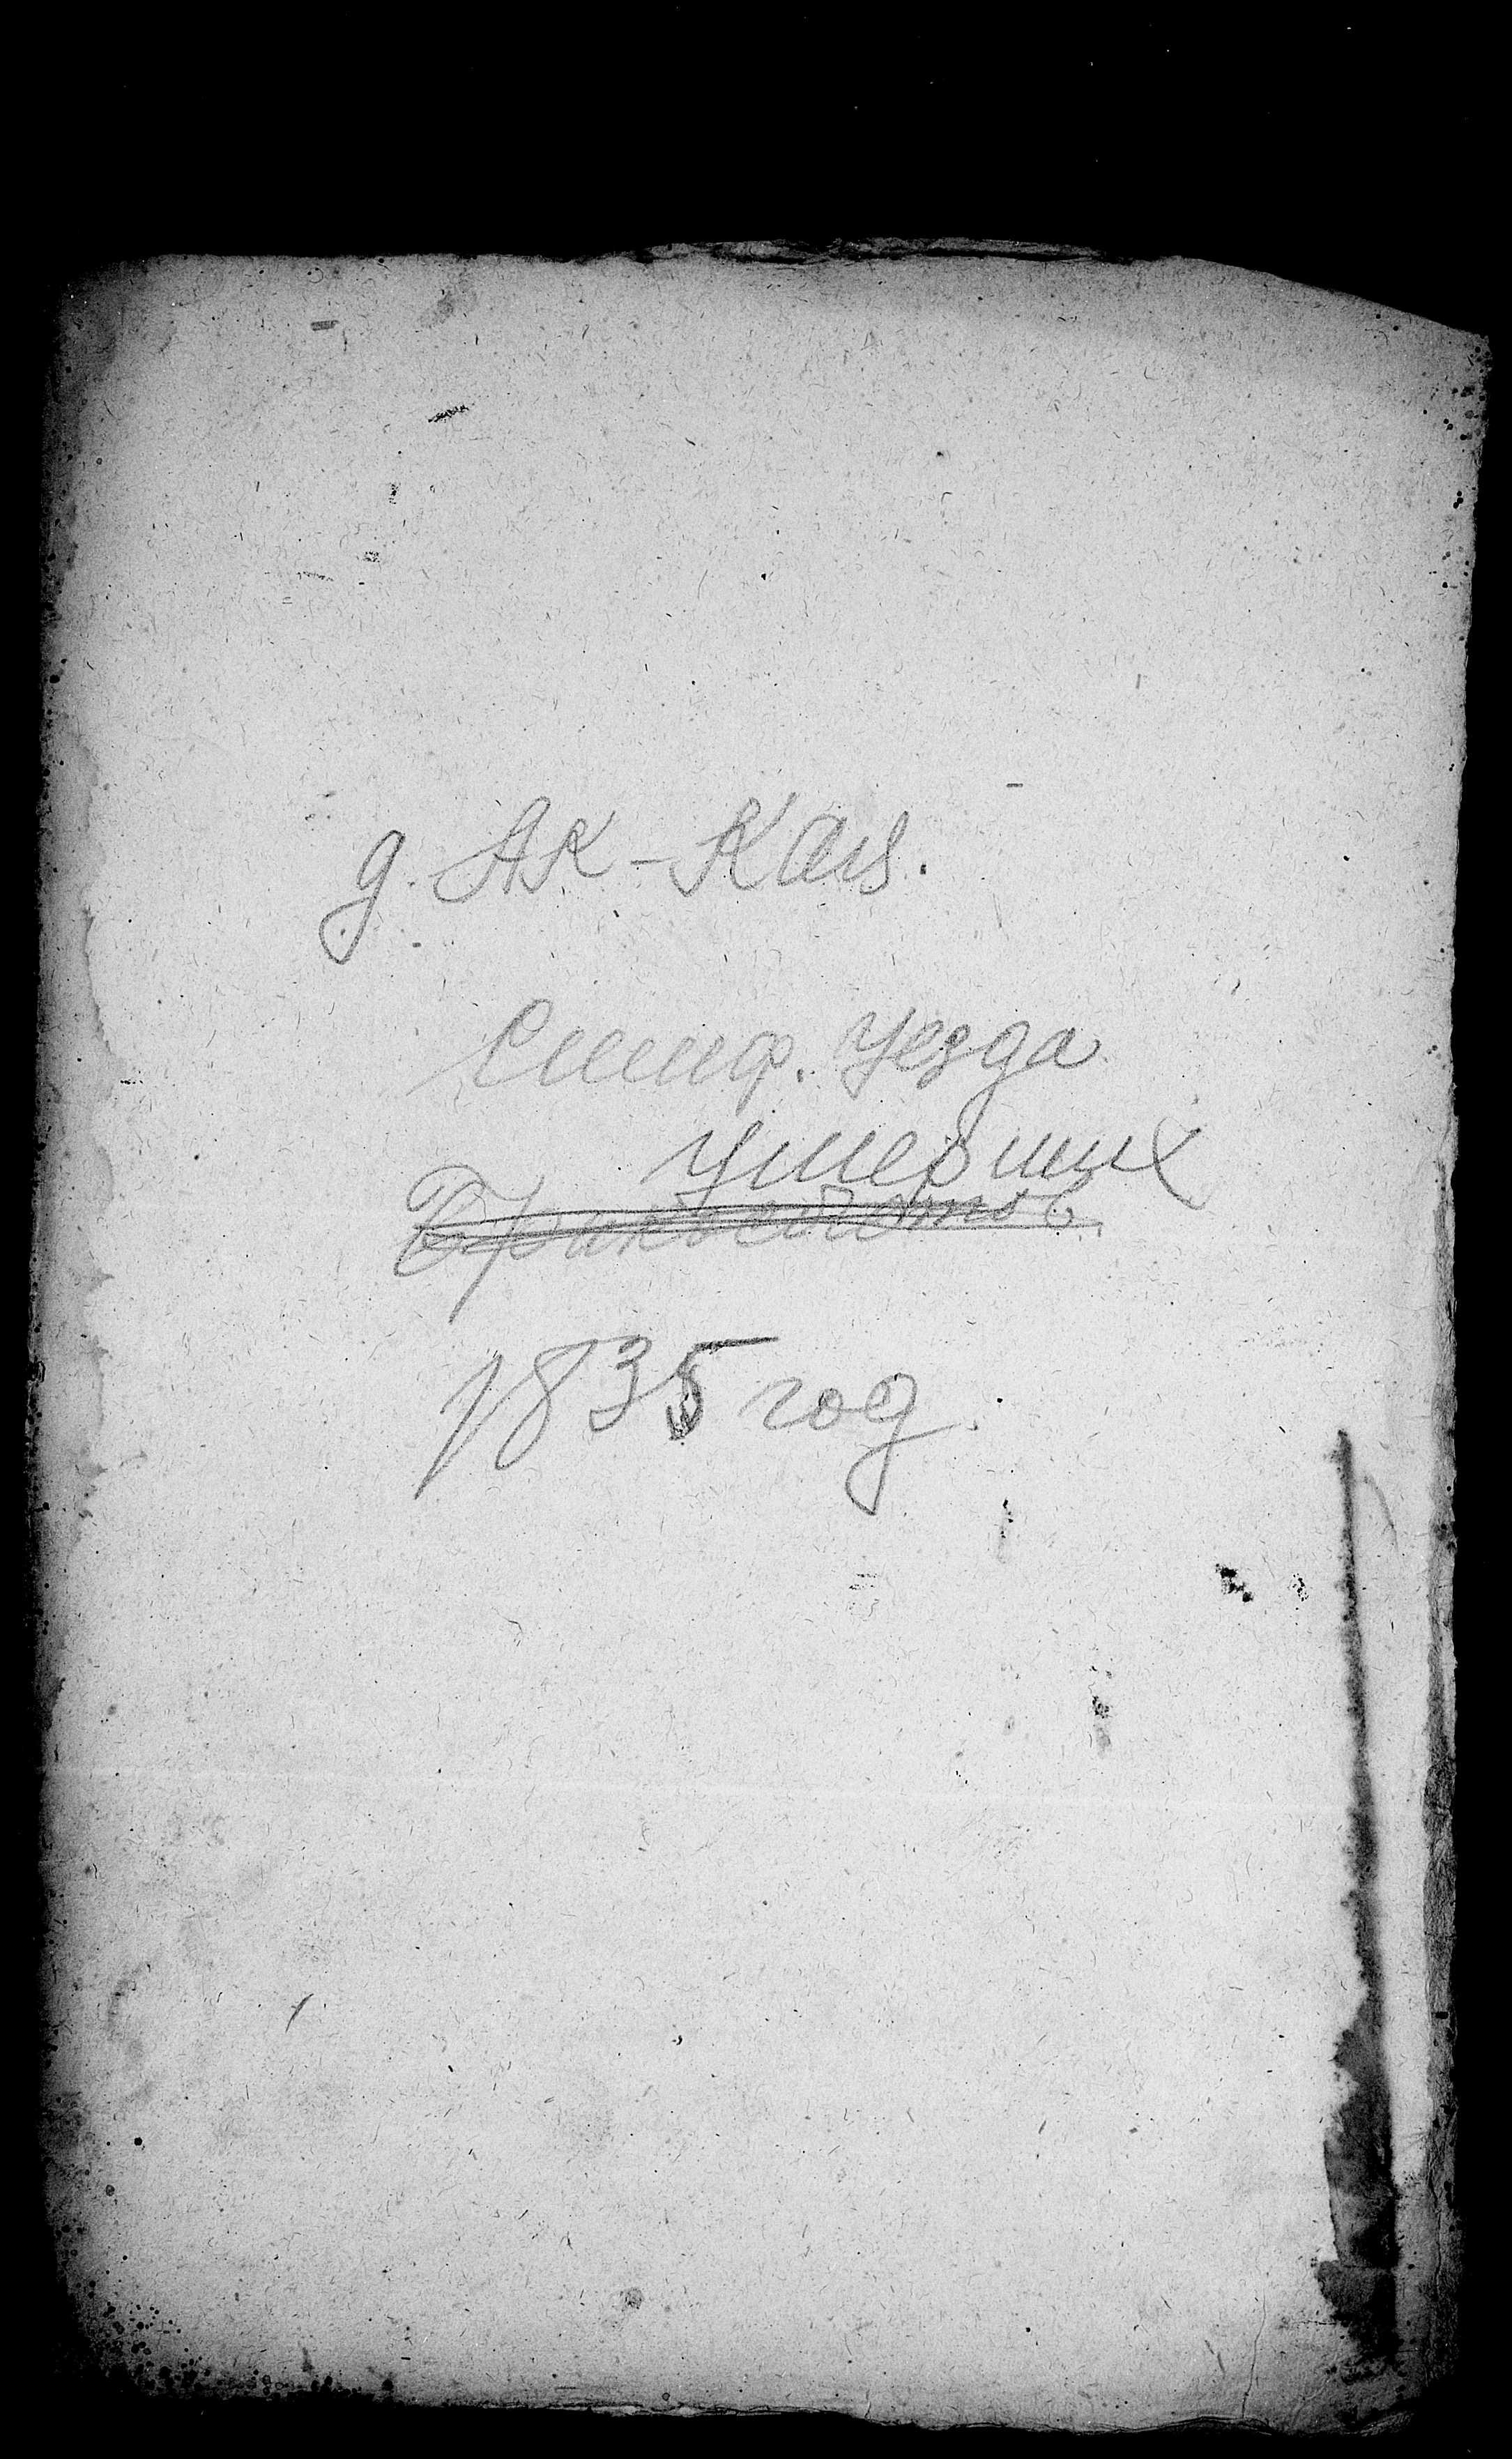 д. Ак-Кая.
Симф. уезда
умерших
1835 год.